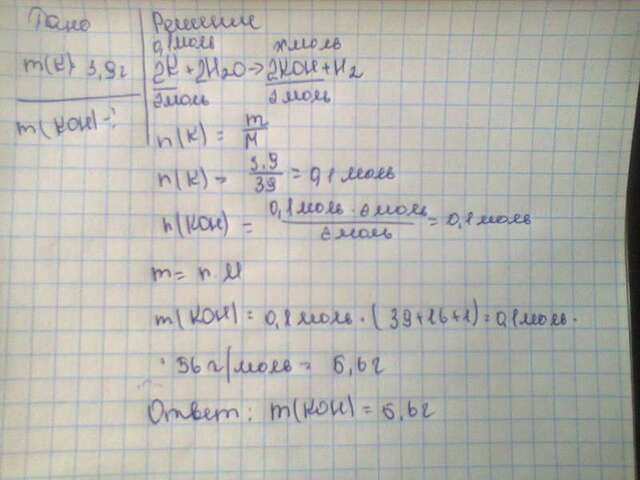 Дано
m(K) 3,9г
m(KOH) - ?
Решение
0,1моль хмоль
2K + 2H2O → 2KOH + H2
2моль 2моль
n(K) = m/M
n(K) = 3.9/39 = 0,1 моль
n(KOH) = 0,1моль · 2моль / 2моль = 0,1моль
m = n · M
m(KOH) = 0,1моль · (39+16+1) = 0,1моль ·
· 56 г/моль = 5,6г
Ответ: m(KOH) = 5,6г